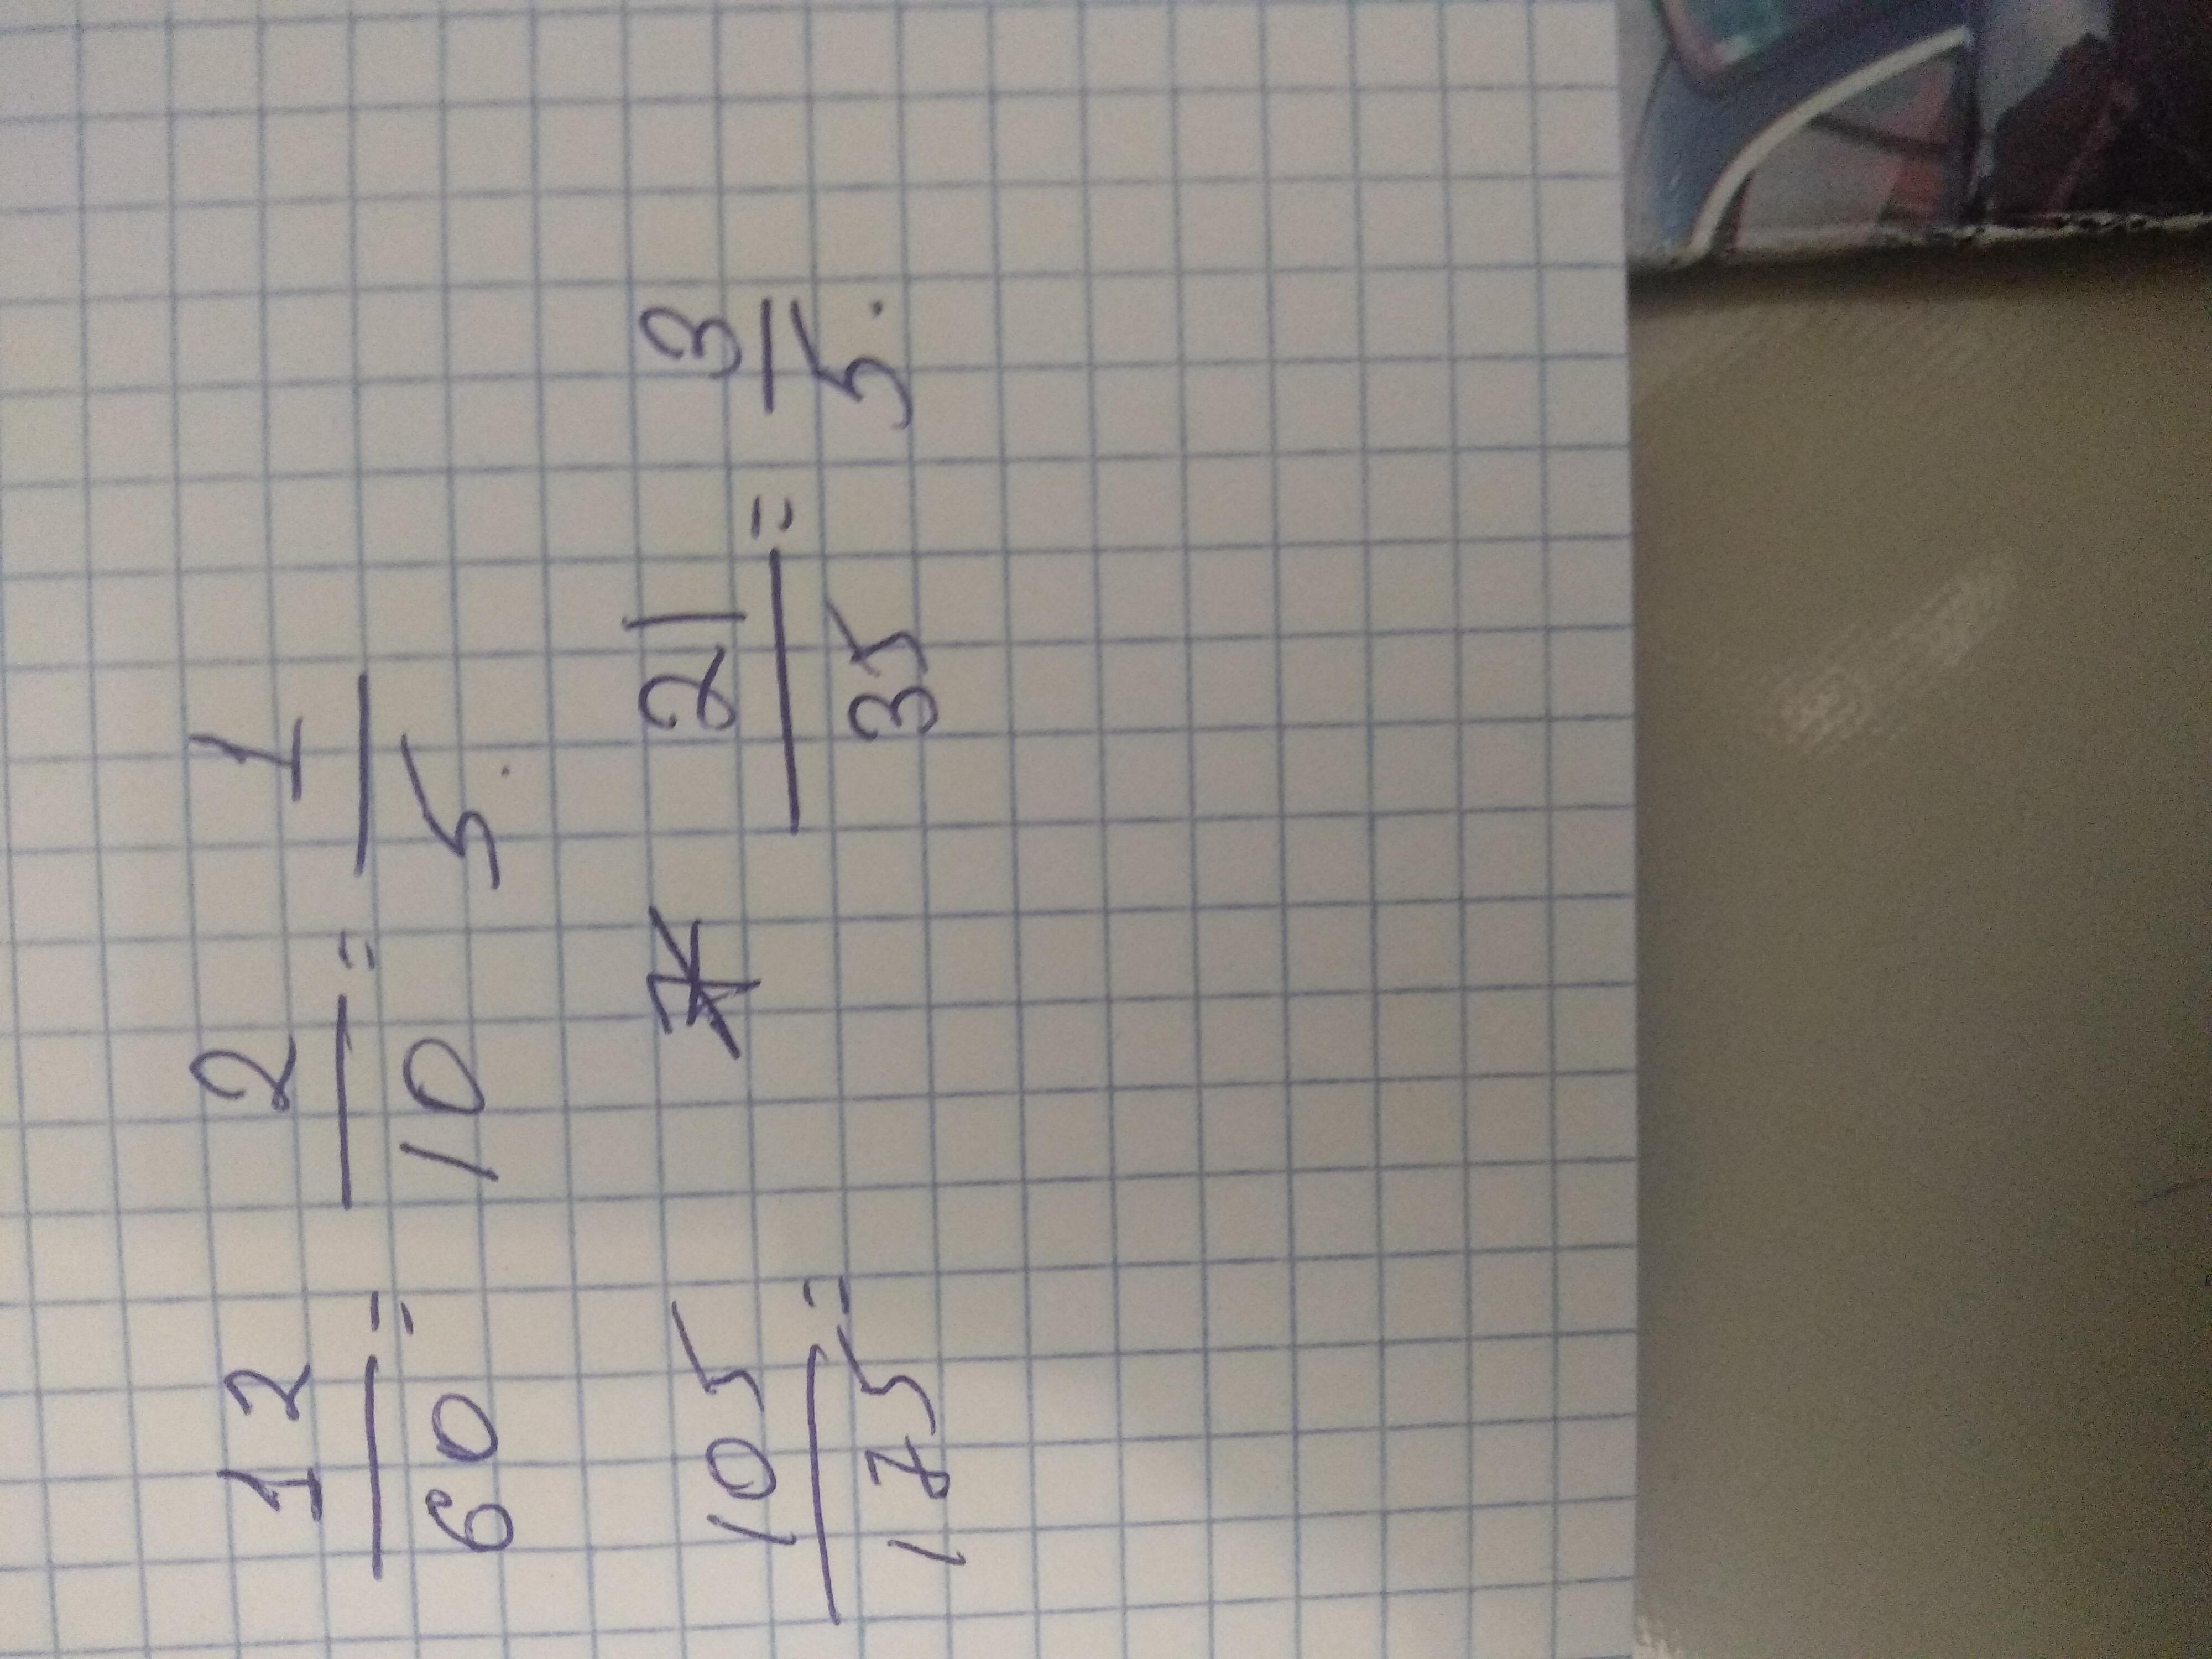 12/60 = 2/10 = 1/5.
105/175 = 21/35 = 3/5.